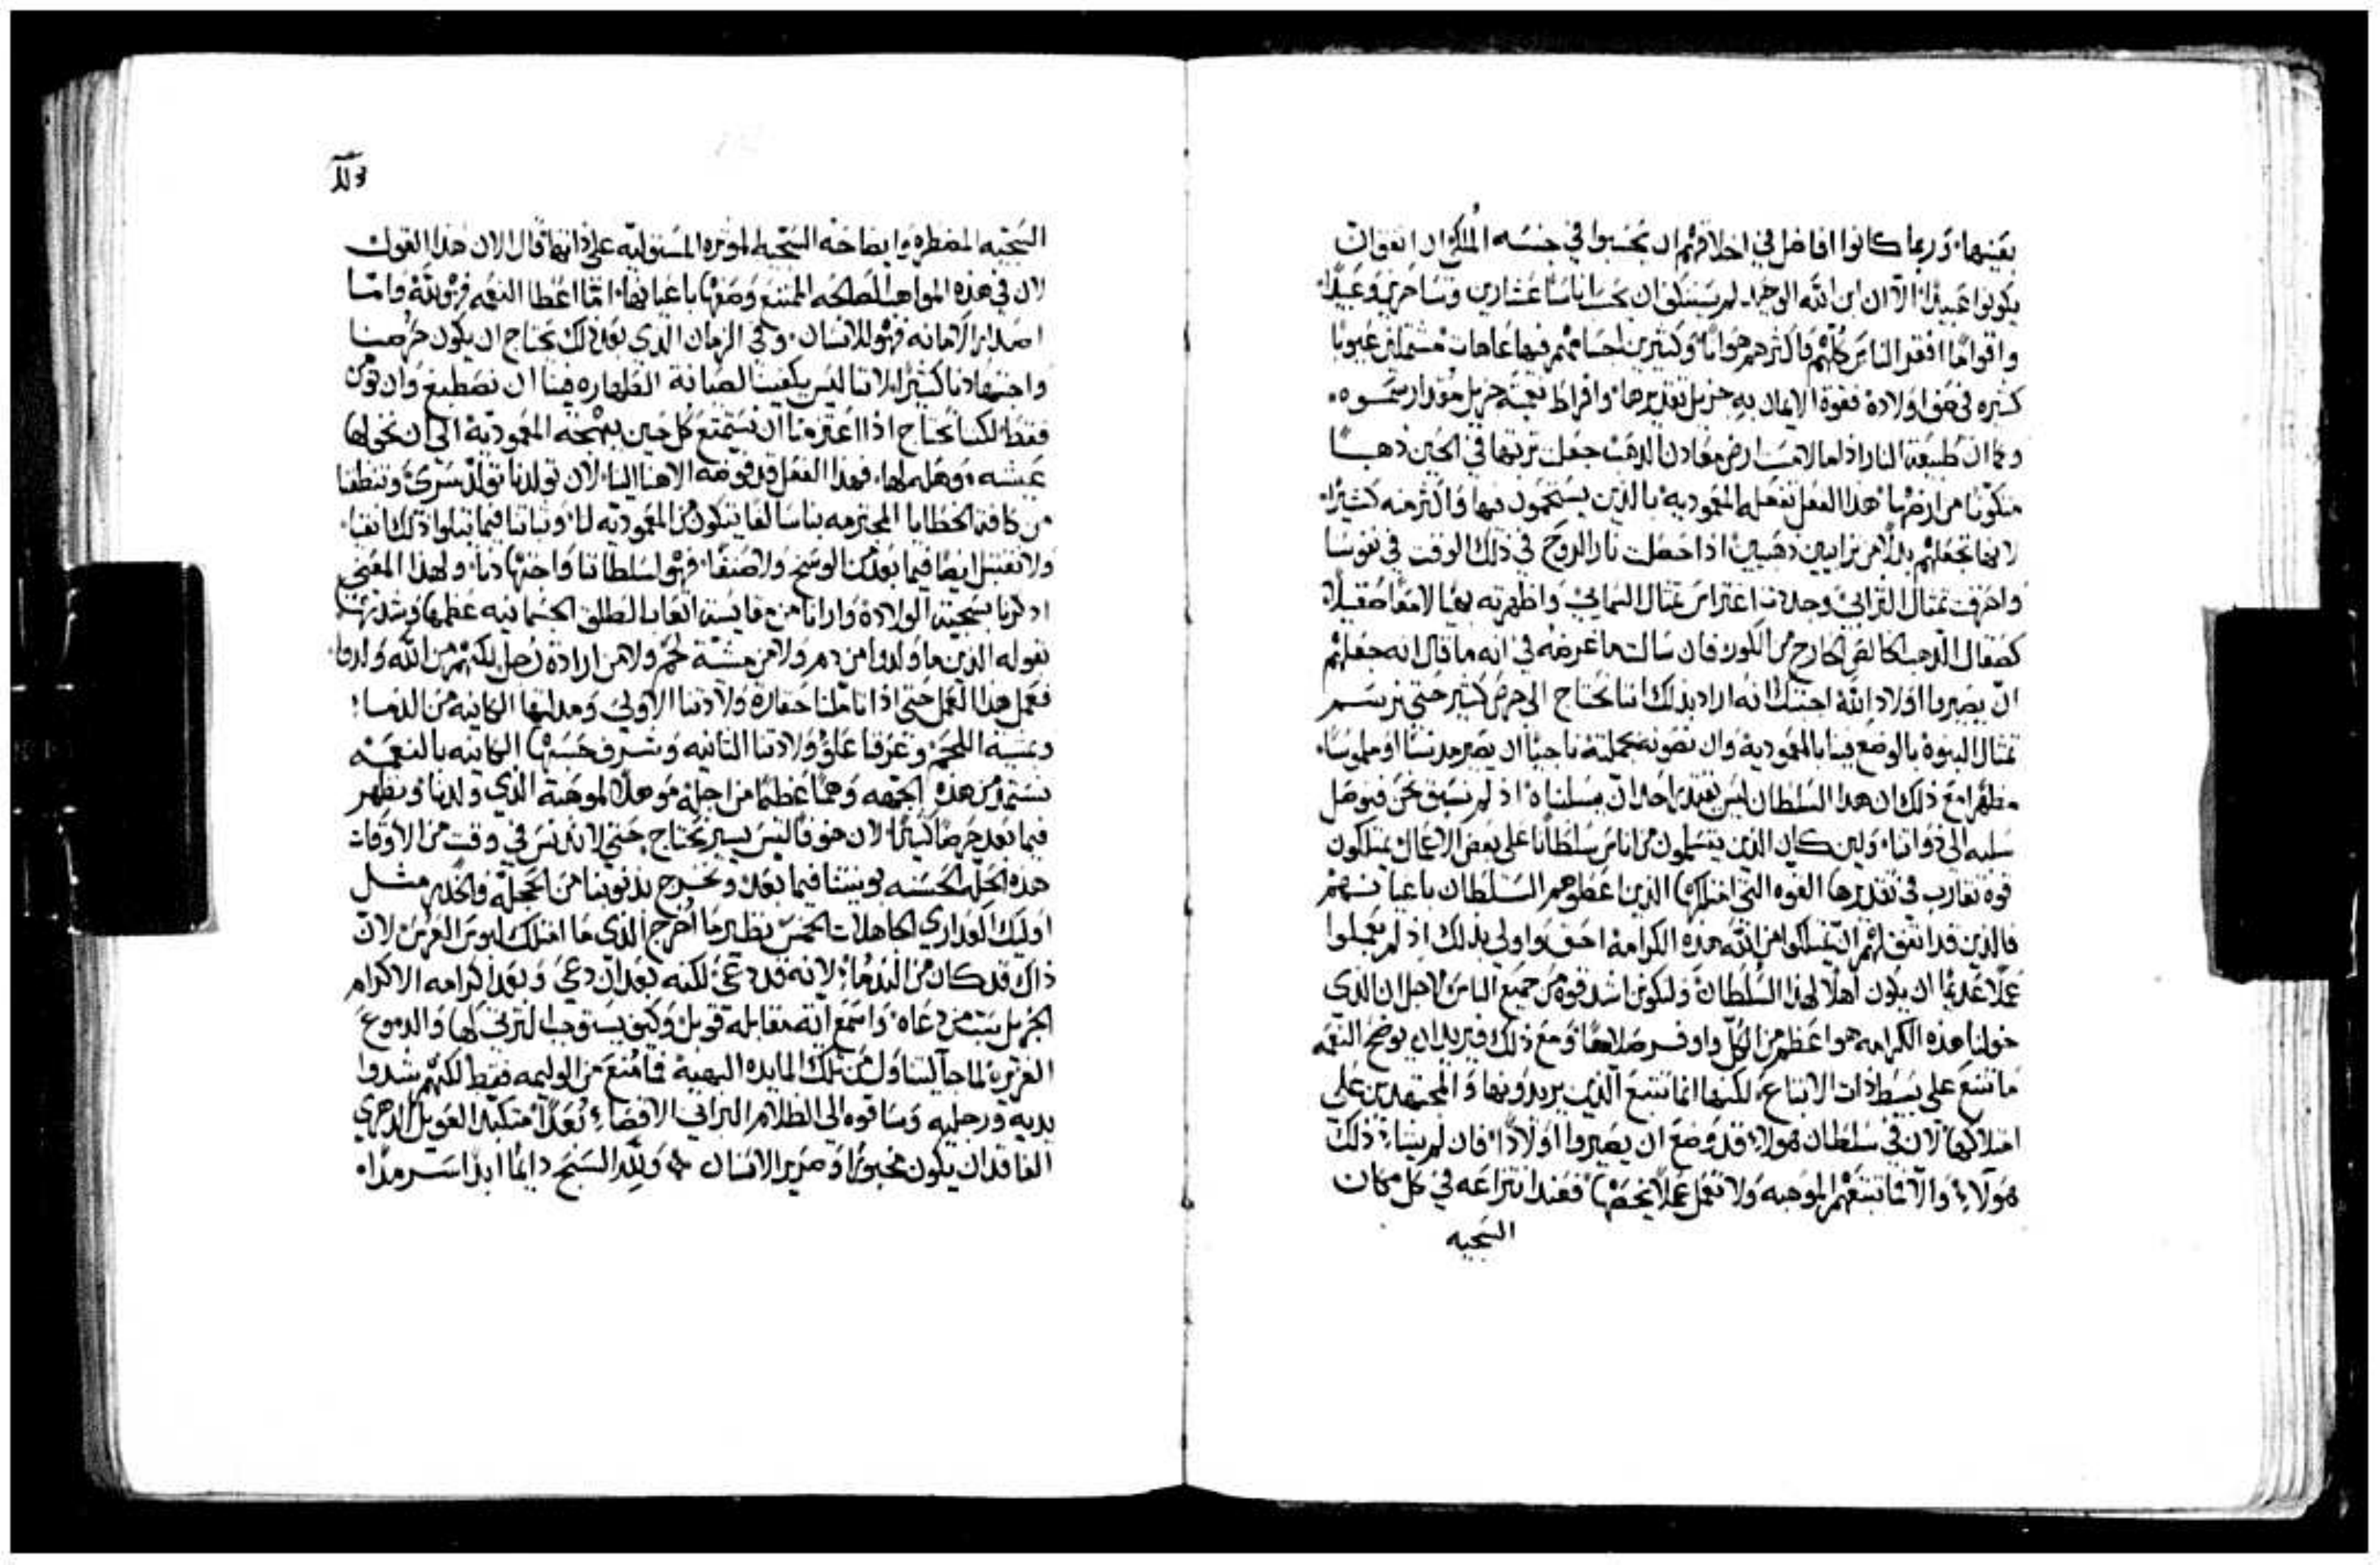 بعينها. وربما كانوا افاضل في اخلاقهم ان يحسبوا في جنسه الملكي ان اتفق ان
يكونوا عبيدًا الا ان ابن الله الوحيد لم يستنكف ان يحسب اناسًا عشارين وسَاحرين وعبيدًا.
واقوامًا افقر الناس كلهم واكثرهم هوانًا وكثيرين اجسامهم فيها عاهات مشتملين عيوبًا
كثيره في عداد اولاده فقوة الايمان به جزيل تقديرها وافراط نعمته جزيل مقدار سموه.
وكما ان طبيعة النار اذا لامست ارض معادن الذهب جعلت تربتها في الحين ذهبًا
متكونًا من ارضها هذا الفعل تفعله المعمودية بالذين يستحمون فيها واكثر منه كثيرًا.
لانها تجعلهم بدلًا من ترابيين ذهبيين اذا حصلت نار الروح في ذلك الوقت في نفوسنا
واحرقت تمثال الترابي وجددت تمثال السمائي واظهرته بهيًا لامعًا صقيلًا
كصقال الذهب الخالص الخارج من الكور فان سالت ما غرضه في انه ما قال انه جعلهم
ان يصيروا اولاد الله اجبتك انه اراد بذلك اننا نحتاج الى حرص كثير حتى نرسم
تمثال البنوة بالوضع فينا بالمعمودية وان نصونه بجملته ناجيًا ان يصير مدنسًا او ملموسًا.
مظهرًا مع ذلك ان هذا السلطان ليس يقتدر احد ان يسلبناه اذ لم نسبق نحن فنوصل
سلبه الى ذواتنا. ولين كان الذين يتسلمون من اناس سلطانًا على بعض الاعمال يمتلكون
قوة تقارب في تقديرها القوه التي امتلكها الذين اعطوهم السلطان باعيانهم
فالذين قد اتفق لهم ان يمتلكوا من الله هذه الكرامة احق واولى بذلك اذ لم يعملوا
عملًا عديمًا ان يكون اهلًا لهذا السلطان وليكونن اشد قوه من جميع الناس لاجل ان الذي
خولنا هذه الكرامه هو اعظم من الكل واوفر صلاحًا ومع ذلك فيريد ان يوضح النعمه
ما تتبع على بسيط ذات الاتباع. لكنها انما تتبع الذين يريدونها والمجتهدين على
امتلاكها لان في سلطان هولاء قد وضع ان يصيروا اولادًا. فان لم يشاء ذلك
هولاء والا فما تتبعهم الموهبه ولا تفعل عملًا يخصها فعند انتزاعه في كل مكان
السجيه
السجيه المضطره وايضاحه السجيه الموثره المستوليه على ذاتها قال الان هذا القول
لان في هذه المواهب الصالحه الممتنع وصفها باعيانها. اما اعطا النعمه فهو لله واما
اصدار الامانه فهو للانسان. وفي الزمان الذي بعد ذلك نحتاج ان يكون حرصنا
واجتهادنا كثيرًا. لاننا ليس يكفينا لصيانة الطهاره فينا ان نصطبغ وان نومن
فقط لكننا نحتاج اذا اعتزمنا ان نستمتع كل حين ببهجة المعمودية الى ان نخولها
عيشه موهله لها. فهذا الفعل قد فوضه الاهنا الينا. لان تولدنا تولد سري وتنظفنا
من كافة الخطايا المجترمه بنا سالفًا يتكون من المعمودية لنا. وثباتنا فيما يتلوا ذلك انقيا.
ولا نقتبل ايضًا فيما بعد من الوسخ ولا صنفًا. فهو لسلطاننا واجتهادنا. ولهذا المعنى
اذكرنا بسجية الولادة وارانا من مقايسة اتعاب الطلق الجسمانيه عظمها وشدتها
بقوله الذين ما ولدوا من دم ولا من مشئة لحم ولا من ارادة رجل لكنهم من الله ولدوا.
فعمل هذا العمل حتى اذا تاملنا حقارة ولادتنا الاولى ومذلتها الكاينه من الدما
ومشية اللحم. وعرفنا علو ولادتنا الثانيه وشرف حسبها الكاينه بالنعمه
نستمد من هذه الجهه وهمًا عظيمًا من اجله موهلًا لموهبة الذي ولدنا ونظهر
فيما بعد حرصًا كبيرًا. لان خوفًا ليس يسير نحتاج حتى لا ندنس في وقت من الاوقات
هذه الحله الحسنه بونيتنا فيما بعد ونخرج بذنوبنا من الحجلة والخدر مثل
اوليك العذاري الجاهلات الخمس نظير ما اخرج الذي ما امتلك لبوس العرس لان
ذاك قد كان من الندما لانه قد دعي. لكنه بعد ان دعي وبعد اكرامه الاكرام
الجزيل شتم من دعاه. واسمع اية مقابله قوبل وكيف يستوجب الترثي لها والدموع
الغزيرة لما جآ ليتناول من تلك المايده البهية فامنع من الوليمه فقط لكنهم شدوا
يديه ورجليه وساقوه الى الظلام البراني الاقصا. نعدًا متكبد العويل الدهري
الفاقد ان يكون مخبورًا وصرير الاسنان ولله السبح دايمًا ابدًا سرمدًا